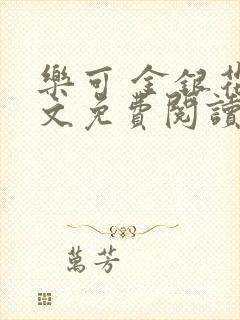 樂可 金銀花
文免費閱讀
萬芳